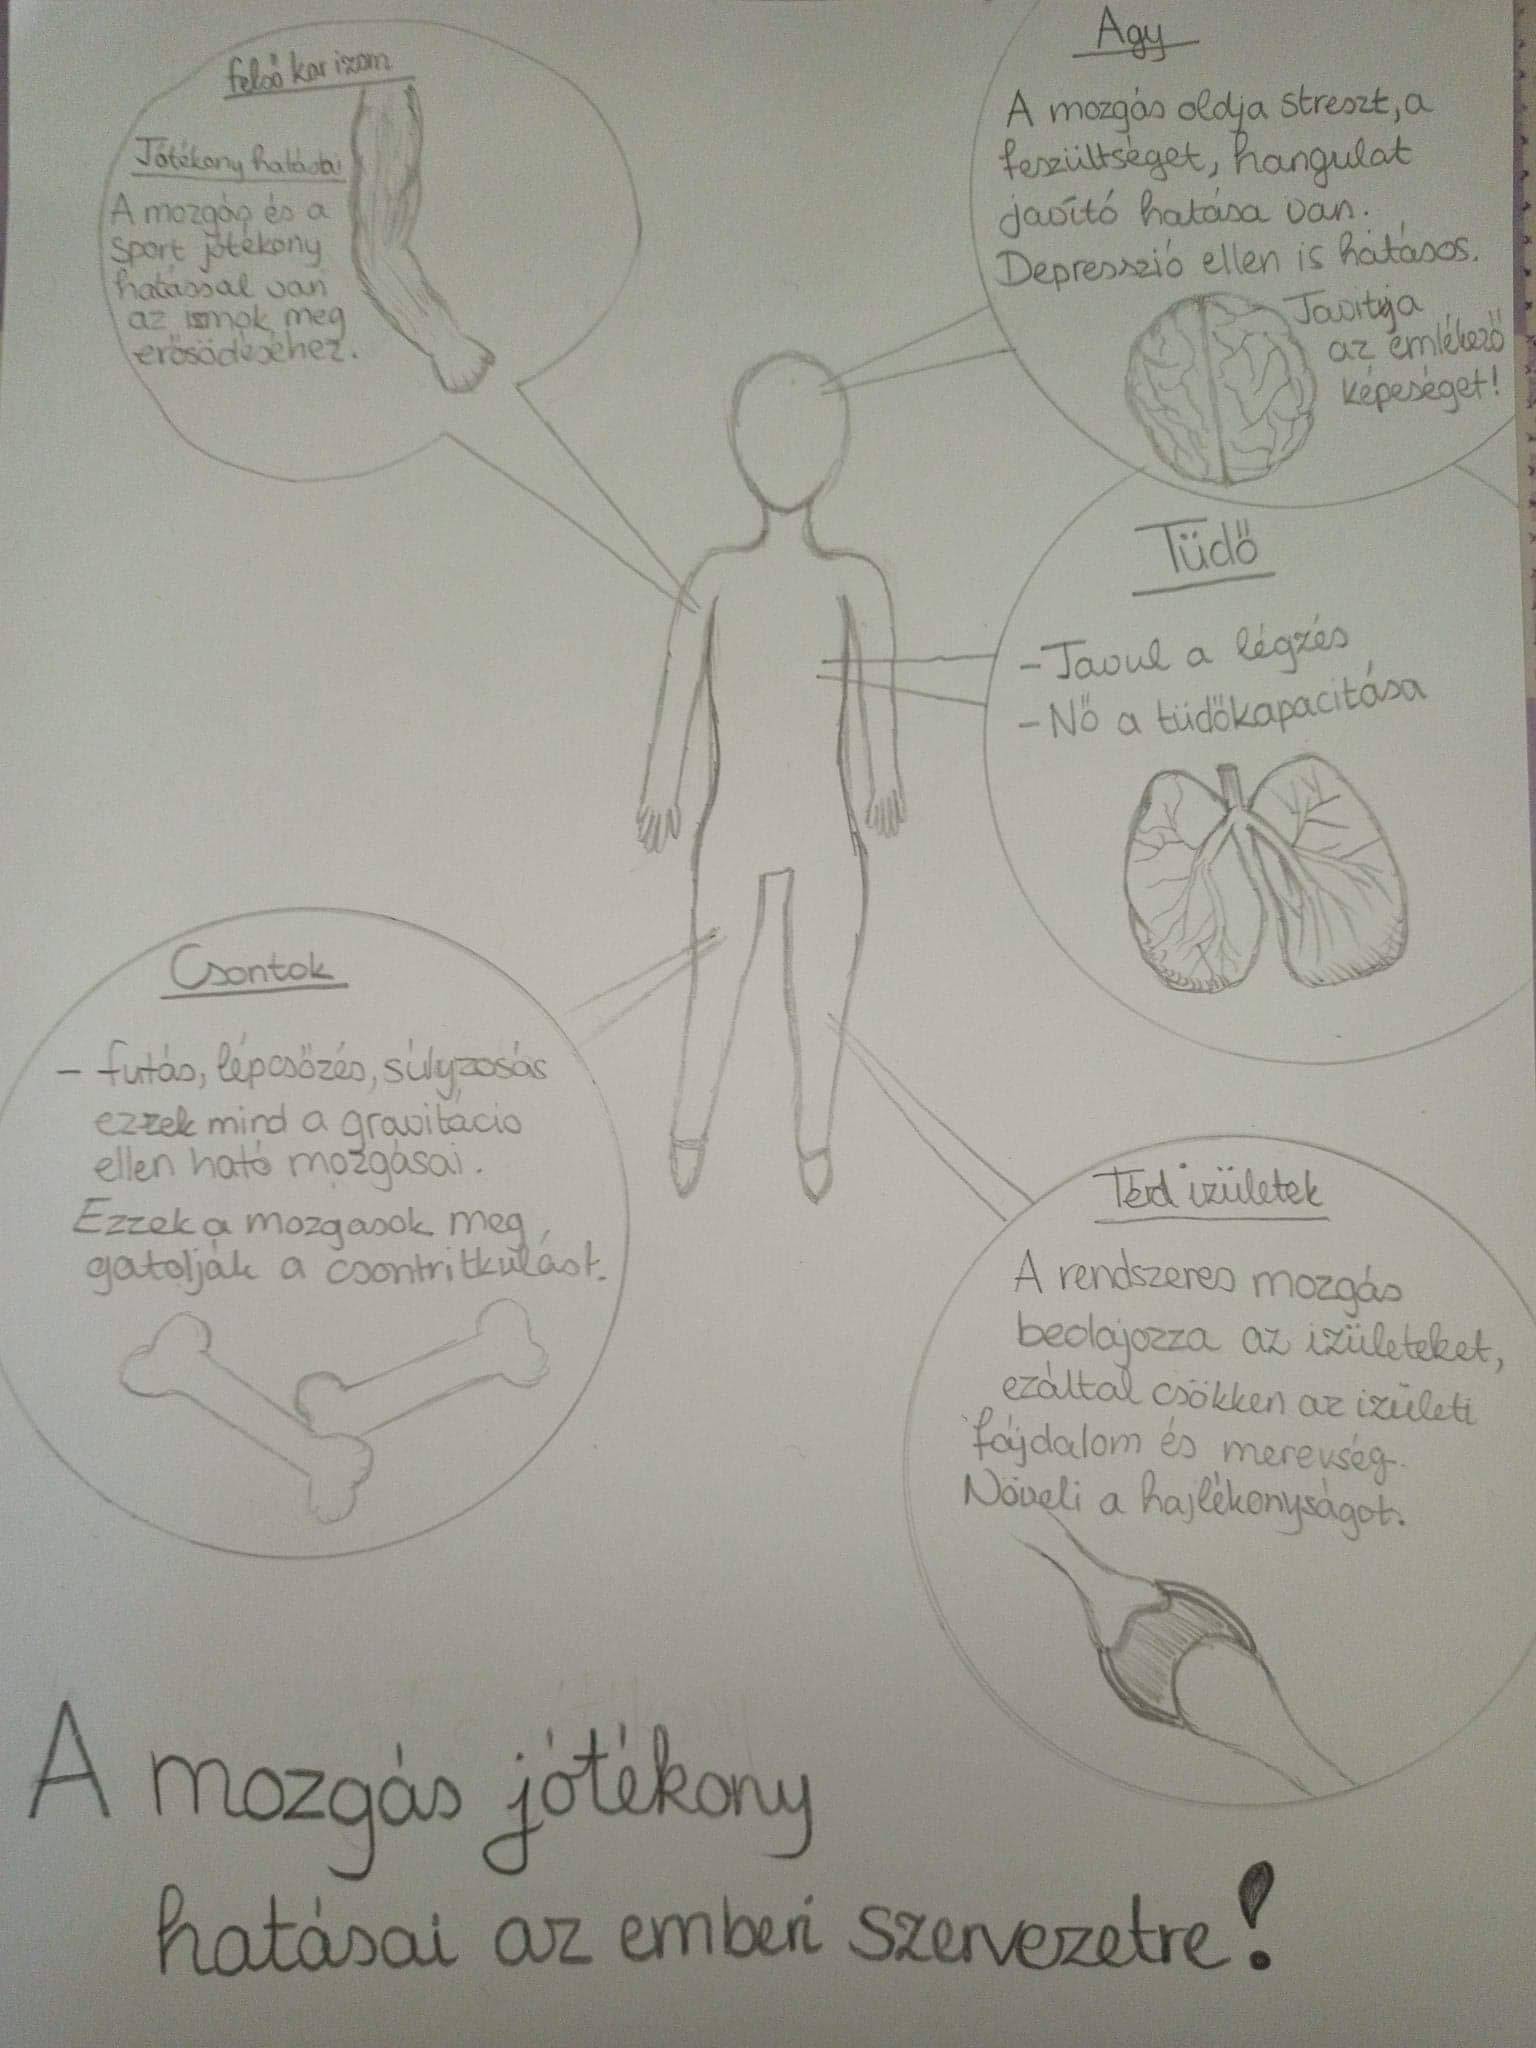 felső kar izom
Jótékony hatásai
A mozgás és a
sport jótékony
hatással van
az izmok meg
erősödéséhez.
Agy
A mozgás oldja streszt, a
feszültséget, hangulat
javító hatása van.
Depresszió ellen is hatásos.
Javítja
az emlékező
képeséget!
Tüdő
- Javul a légzés
- Nő a tüdőkapacitása
Csontok
- futás, lépcsőzés, súlyzosás
ezzek mind a gravitácio
ellen ható mozgásai.
Ezzek a mozgasok meg
gatolják a csontritkulást.
Térd izületek
A rendszeres mozgás
beolajozza az izületeket,
ezáltal csökken az izületi
fájdalom és merevség.
Növeli a hajlékonyságot.
A mozgás jótékony
hatásai az emberi szervezetre!